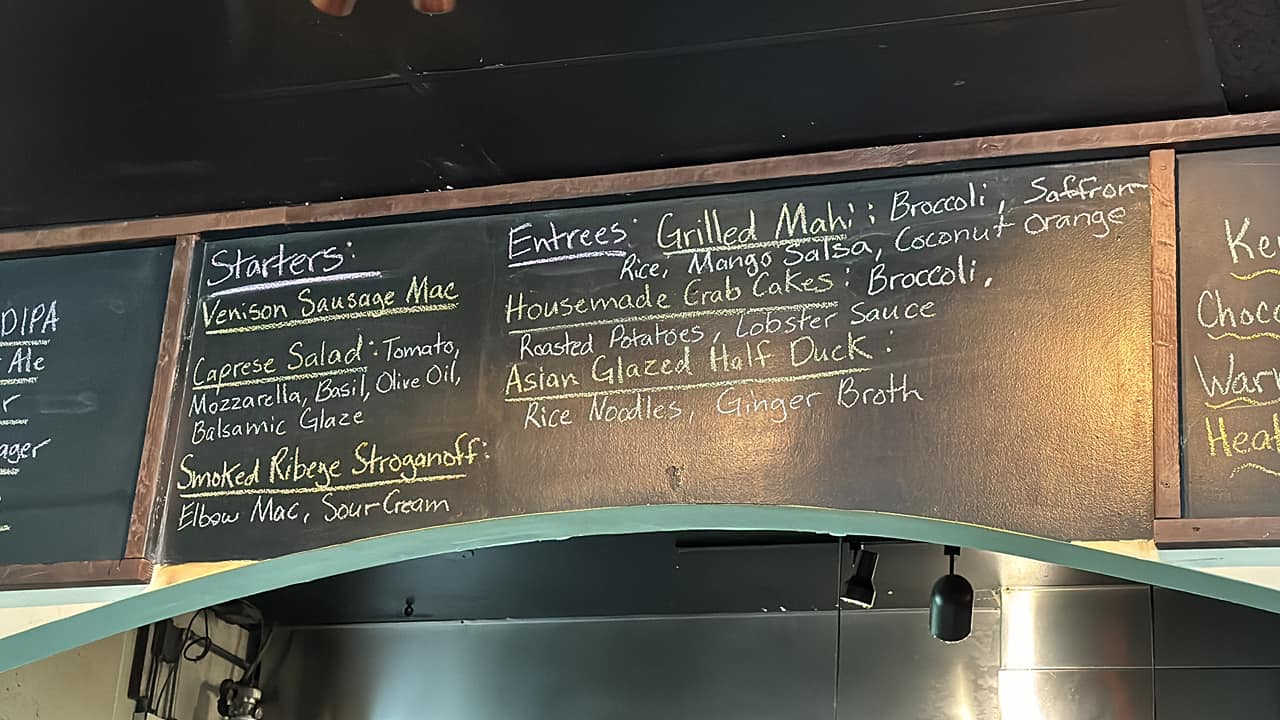 DIPA
Ale
Starters:
Venison Sausage Mac
Caprese Salad: Tomato,
Mozzarella, Basil, Olive Oil,
Balsamic Glaze
Smoked Ribeye Stroganoff:
Elbow Mac, Sour Cream
Entrees: Grilled Mahi: Broccoli, Saffron
Rice, Mango Salsa, Coconut Orange
Housemade Crab Cakes: Broccoli,
Roasted Potatoes, Lobster Sauce
Asian Glazed Half Duck:
Rice Noodles, Ginger Broth